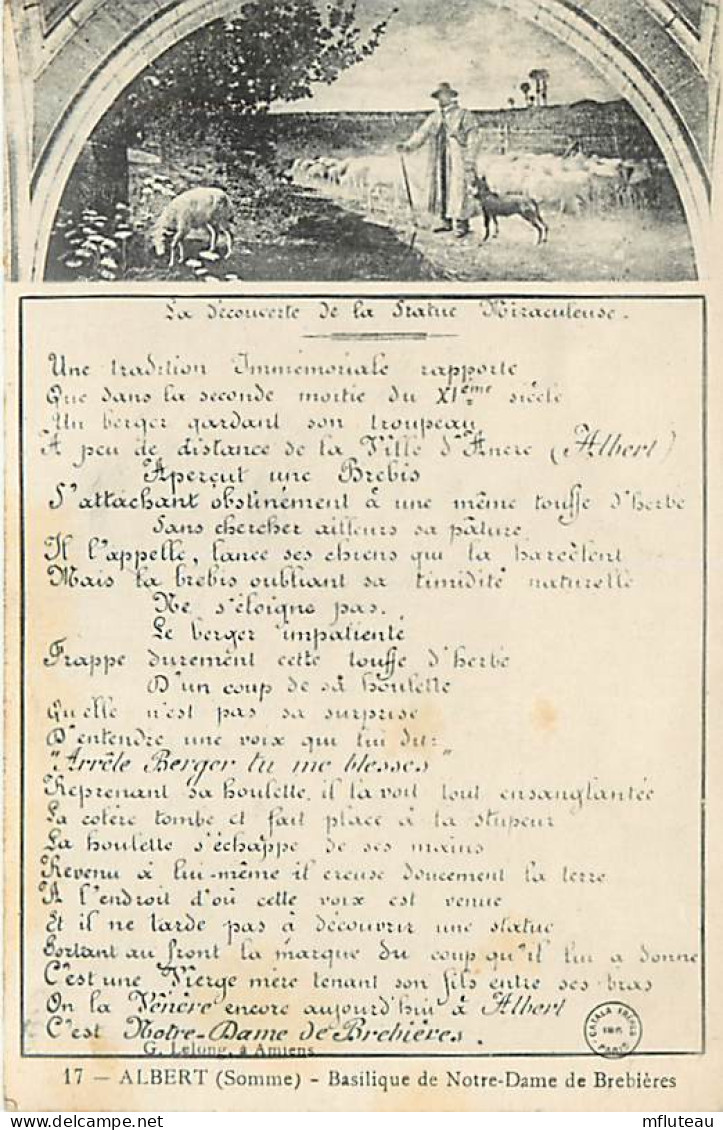 La découverte de la Statue Miraculeuse.
Une tradition Immémoriale rapporte
Que dans la seconde moitié du XIème siècle
Un berger gardant son troupeau
A peu de distance de la Ville d'Ancre (Albert)
Aperçut une Brebis
S'attachant obstinément à une même touffe d'herbe
Sans chercher ailleurs sa pâture
Il l'appelle, lance ses chiens qui la harcèlent
Mais la brebis oubliant sa timidité naturelle
Ne s'éloigne pas.
Le berger impatienté
Frappe durement cette touffe d'herbe
D'un coup de sa houlette
Quelle n'est pas sa surprise
D'entendre une voix qui lui dit:
"Arrête Berger tu me blesses"
Reprenant sa houlette, il la voit tout ensanglantée
La colère tombe et fait place à la stupeur
La houlette s'échappe de ses mains
Revenu à lui-même il creuse doucement la terre
A l'endroit d'où cette voix est venue
Et il ne tarde pas à découvrir une statue
Portant au front la marque du coup qu'il lui a donné
C'est une Vierge mère tenant son fils entre ses bras
On la Vénère encore aujourd'hui à Albert
C'est Notre-Dame de Brebières.
G. Lelong, à Amiens
CATALA FRÈRES
PARIS
17 — ALBERT (Somme) - Basilique de Notre-Dame de Brebières
mfluteau